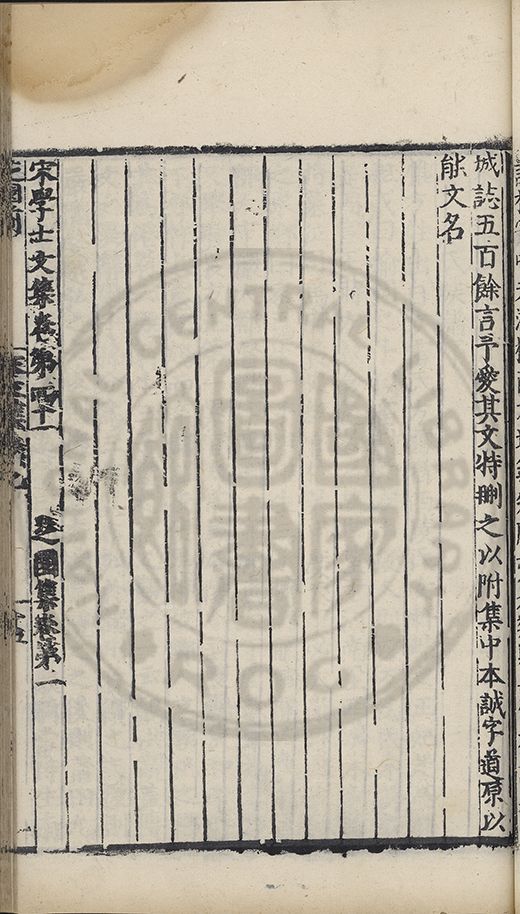 城誌五百餘言予愛其文特刪之以附集中本誠字道原以
能文名
宋學士文集卷第四十一 芝園集卷第一